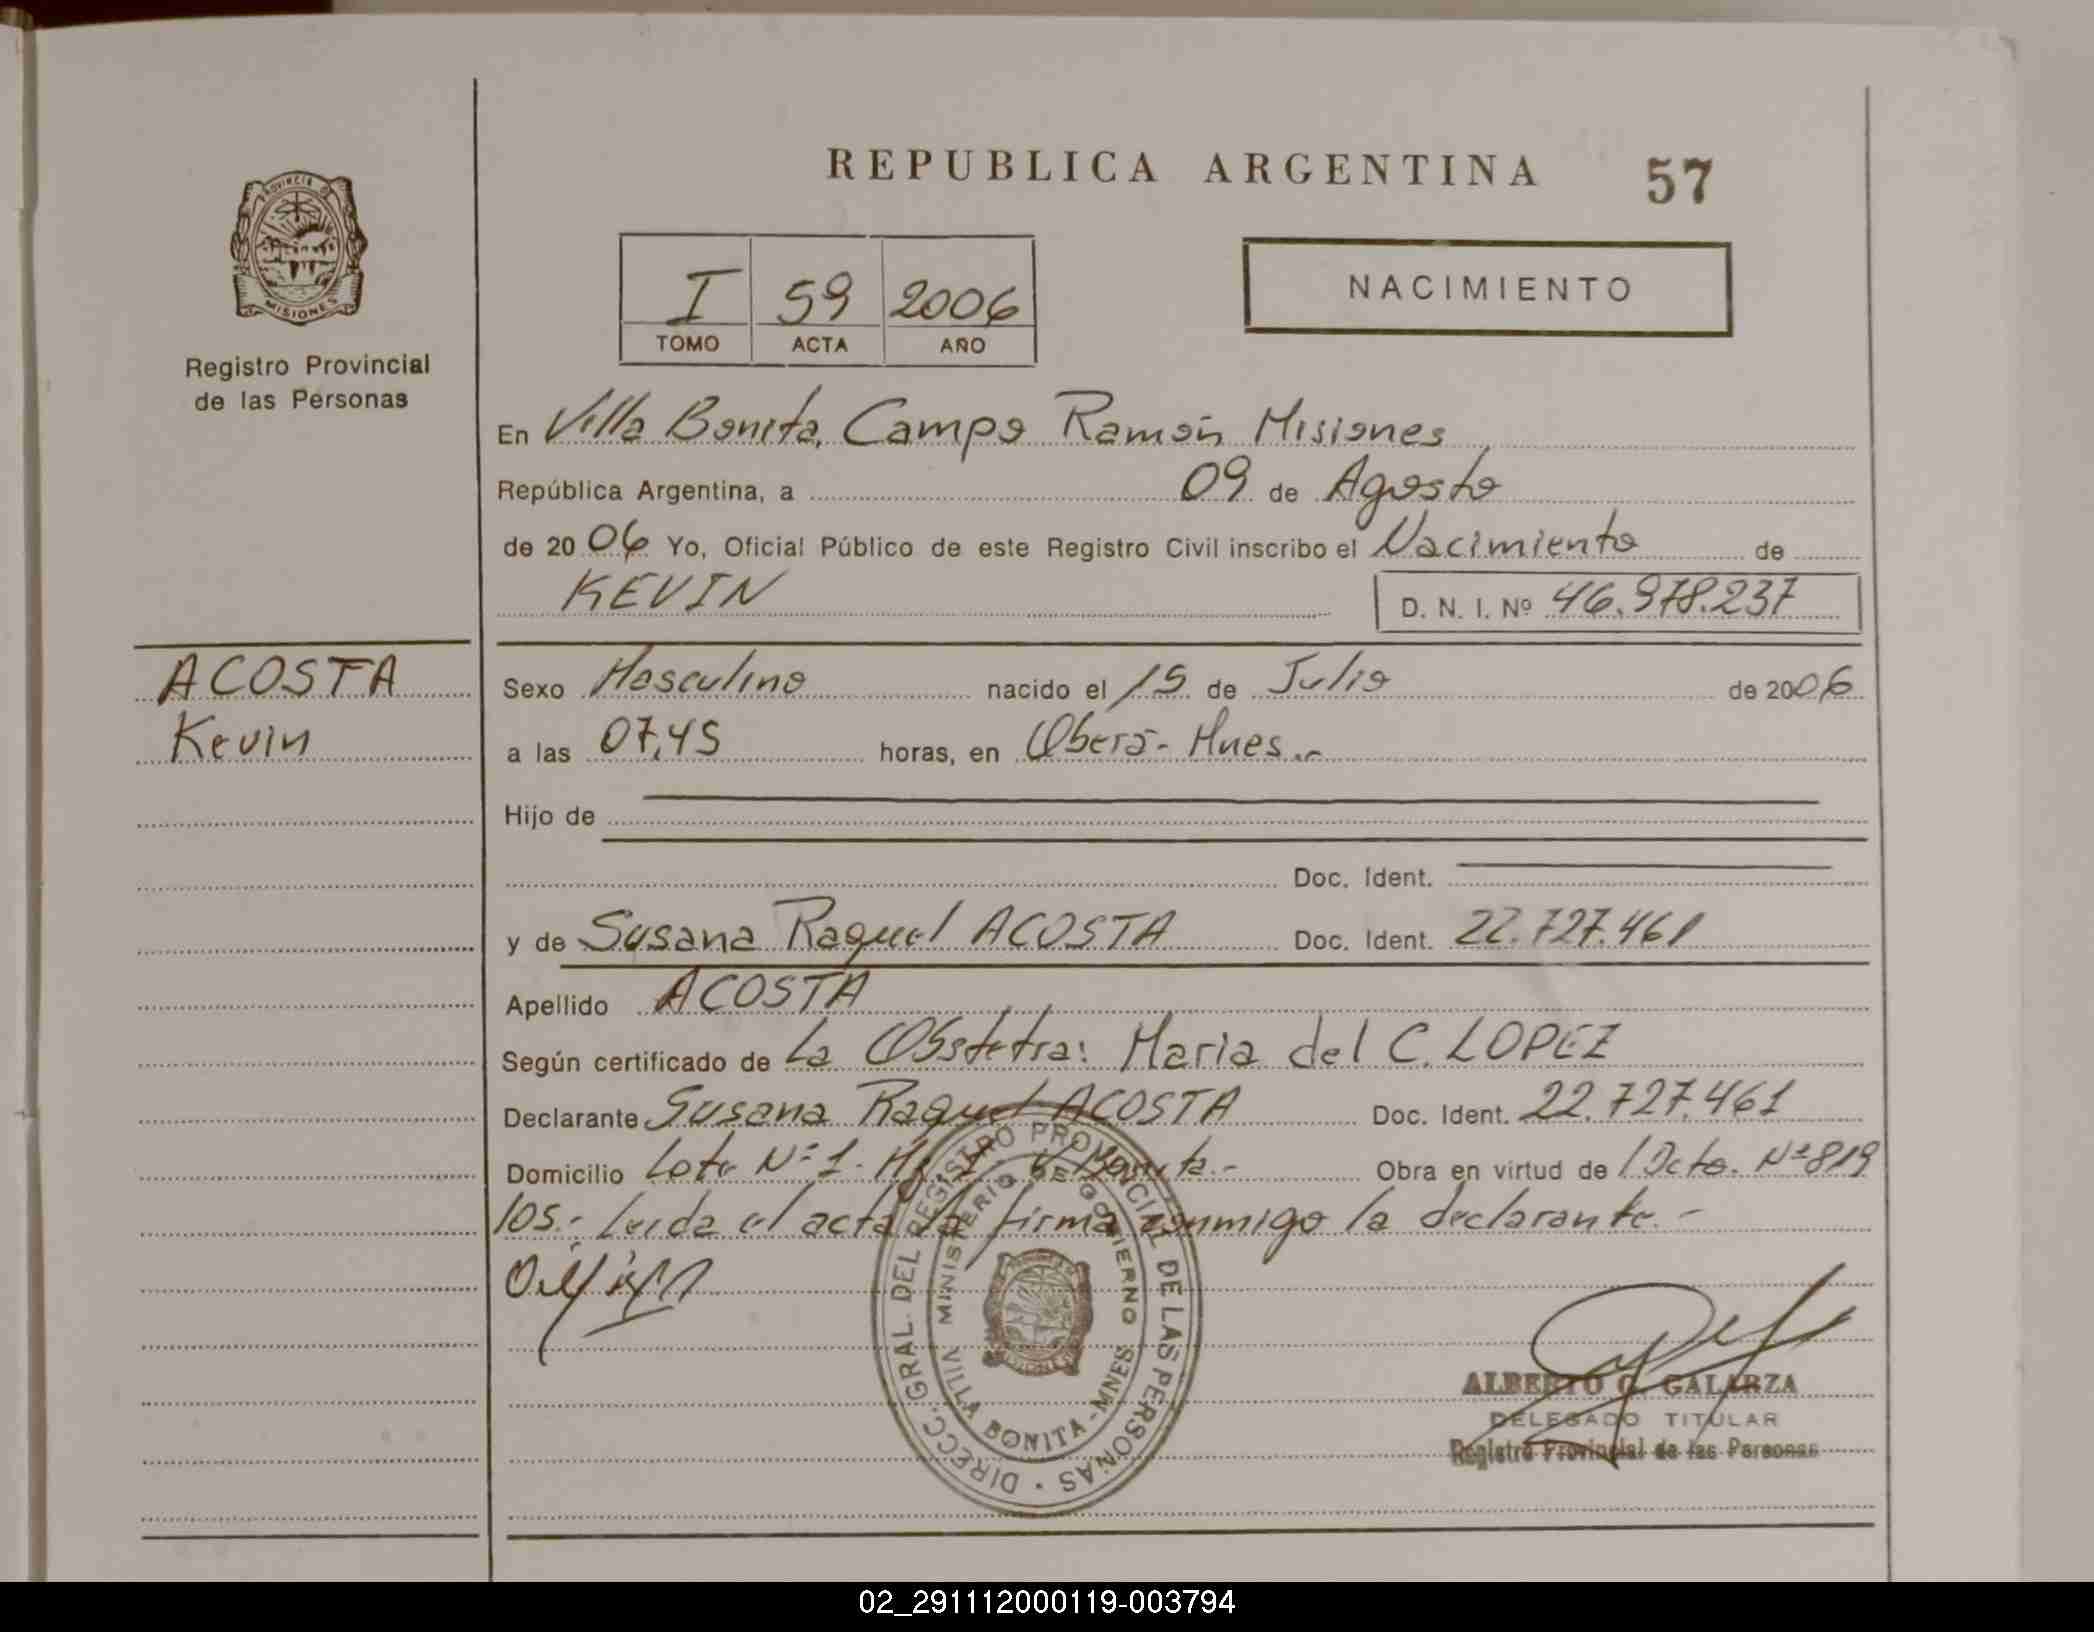 REPUBLICA ARGENTINA 57
PROVINCIA D MISIONES
Registro Provincial
de las Personas
I 59 2006
TOMO ACTA AÑO
NACIMIENTO
En Villa Bonita, Campo Ramón Misiones
República Argentina, a 09 de Agosto
de 2006 Yo, Oficial Público de este Registro Civil inscribo el Nacimiento de
KEVIN D. N. I. Nº 46.978.237
ACOSTA
Kevin
Sexo Masculino nacido el 15 de Julio de 2006
a las 07,45 horas, en Oberá - Mnes.-
Hijo de
Doc. Ident.
y de Susana Raquel ACOSTA Doc. Ident. 22.727.461
Apellido ACOSTA
Según certificado de La Obstetra: Maria del C. LOPEZ
Declarante Susana Raquel ACOSTA Doc. Ident. 22.727.461
Domicilio Lote Nº 1. V. Bonita.- Obra en virtud de Dcto. Nº 819
105.- Leida el acta la firma conmigo la declarante.-
DIRECC. GRAL. DEL REGISTRO PROVINCIAL DE LAS PERSONAS
MINISTERIO DE GOBIERNO
VILLA BONITA - MNES
ALBERTO GALARZA
DELEGADO TITULAR
Registro Provincial de las Personas
02_291112000119-003794